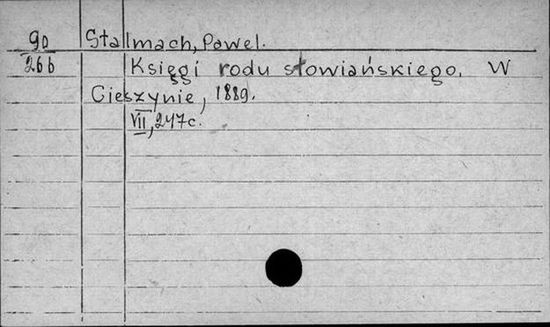 90 Stallmach, Paweł.
266 Księgi rodu słowiańskiego. W
Cieszynie, 1889.
VII, 247c.